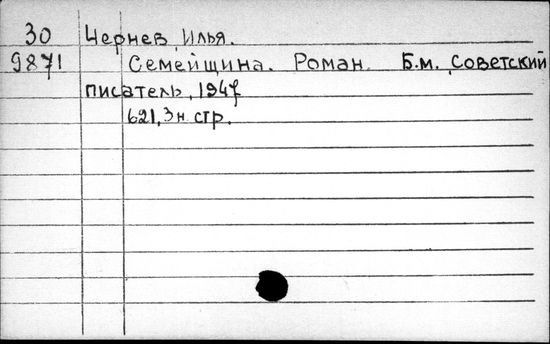 30 Чернев, Илья.
9871 Семейщина. Роман. Б.м., Советский
писатель, 1947
621, 3 н. стр.